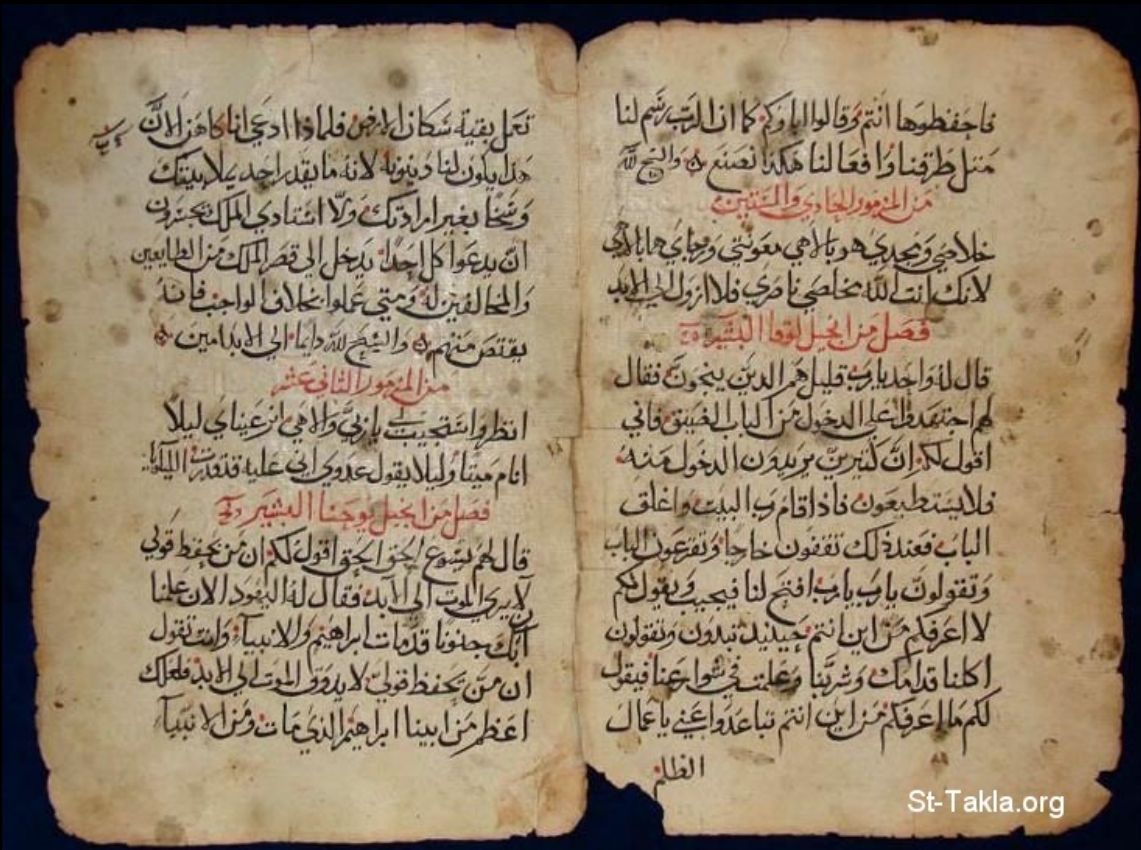 فاحفظوها انتم وقالوا اباوكم كما ان الرب رسم لنا
مثل طرقنا وافعالنا هكذا نصنع والسبح لله
من المزمور الحادي والستين
خلاصي ومجدي هو بالاهي معونتي ورجاي هما بالاهي
لانك انت الله مخلصي ناصري فلا ازول الي الابد
فصل من انجيل لوقا البشير
قال له واحد يارب قليل هم الدين ينجون فقال
لهم اجتهدوا علي الدخول من الباب الضيق فاني
اقول لكم ان كثيرين يريدون الدخول منه
فلا يستطيعون فاذا قام رب البيت واغلق
الباب فعند ذلك تقفون خارجا وتقرعون الباب
وتقولون يارب يارب افتح لنا فيجيب ويقول لكم
لا اعرفكم من اين انتم حينيذ تبدون وتقولون
اكلنا قدامك وشربنا وعلمت في شوارعنا فيقول
لكم ما اعرفكم من اين انتم تباعدوا عني ياعمال
الظلم
تعمل بقية سكان الارض فلماذا ادعي انا كاهن لان
هذا يكون لنا دينونة لانه ما يقدر احد يملا بيتك
وسخا بغير ارادتك ولا استادي الملك يجسرون
ان يدعوا كل احد يدخل الي قصر الملك من الطايعين
والمخالفين له ومتي عملوا بخلاف الواجب فانه
يقتص منهم والسبح لله دايما الي الابد امين
من المزمور الثاني عشر
انظر واستجيب لي ياربي والاهي انر عيناي ليلا
انام ميتا وليلا يقول عدوي اني عليه قد قدرت
فصل من انجيل يوحنا البشير
قال لهم يسوع الحق الحق اقول لكم ان من يحفظ قولي
لا يري الموت الي الابد فقال له اليهود الان علمنا
ان بك جنونا قد مات ابراهيم والانبياء وانت تقول
ان من يحفظ قولي لا يدوق الموت الي الابد فلعلك
اعظم من ابينا ابراهيم الذي مات ومن الانبيا
St-Takla.org